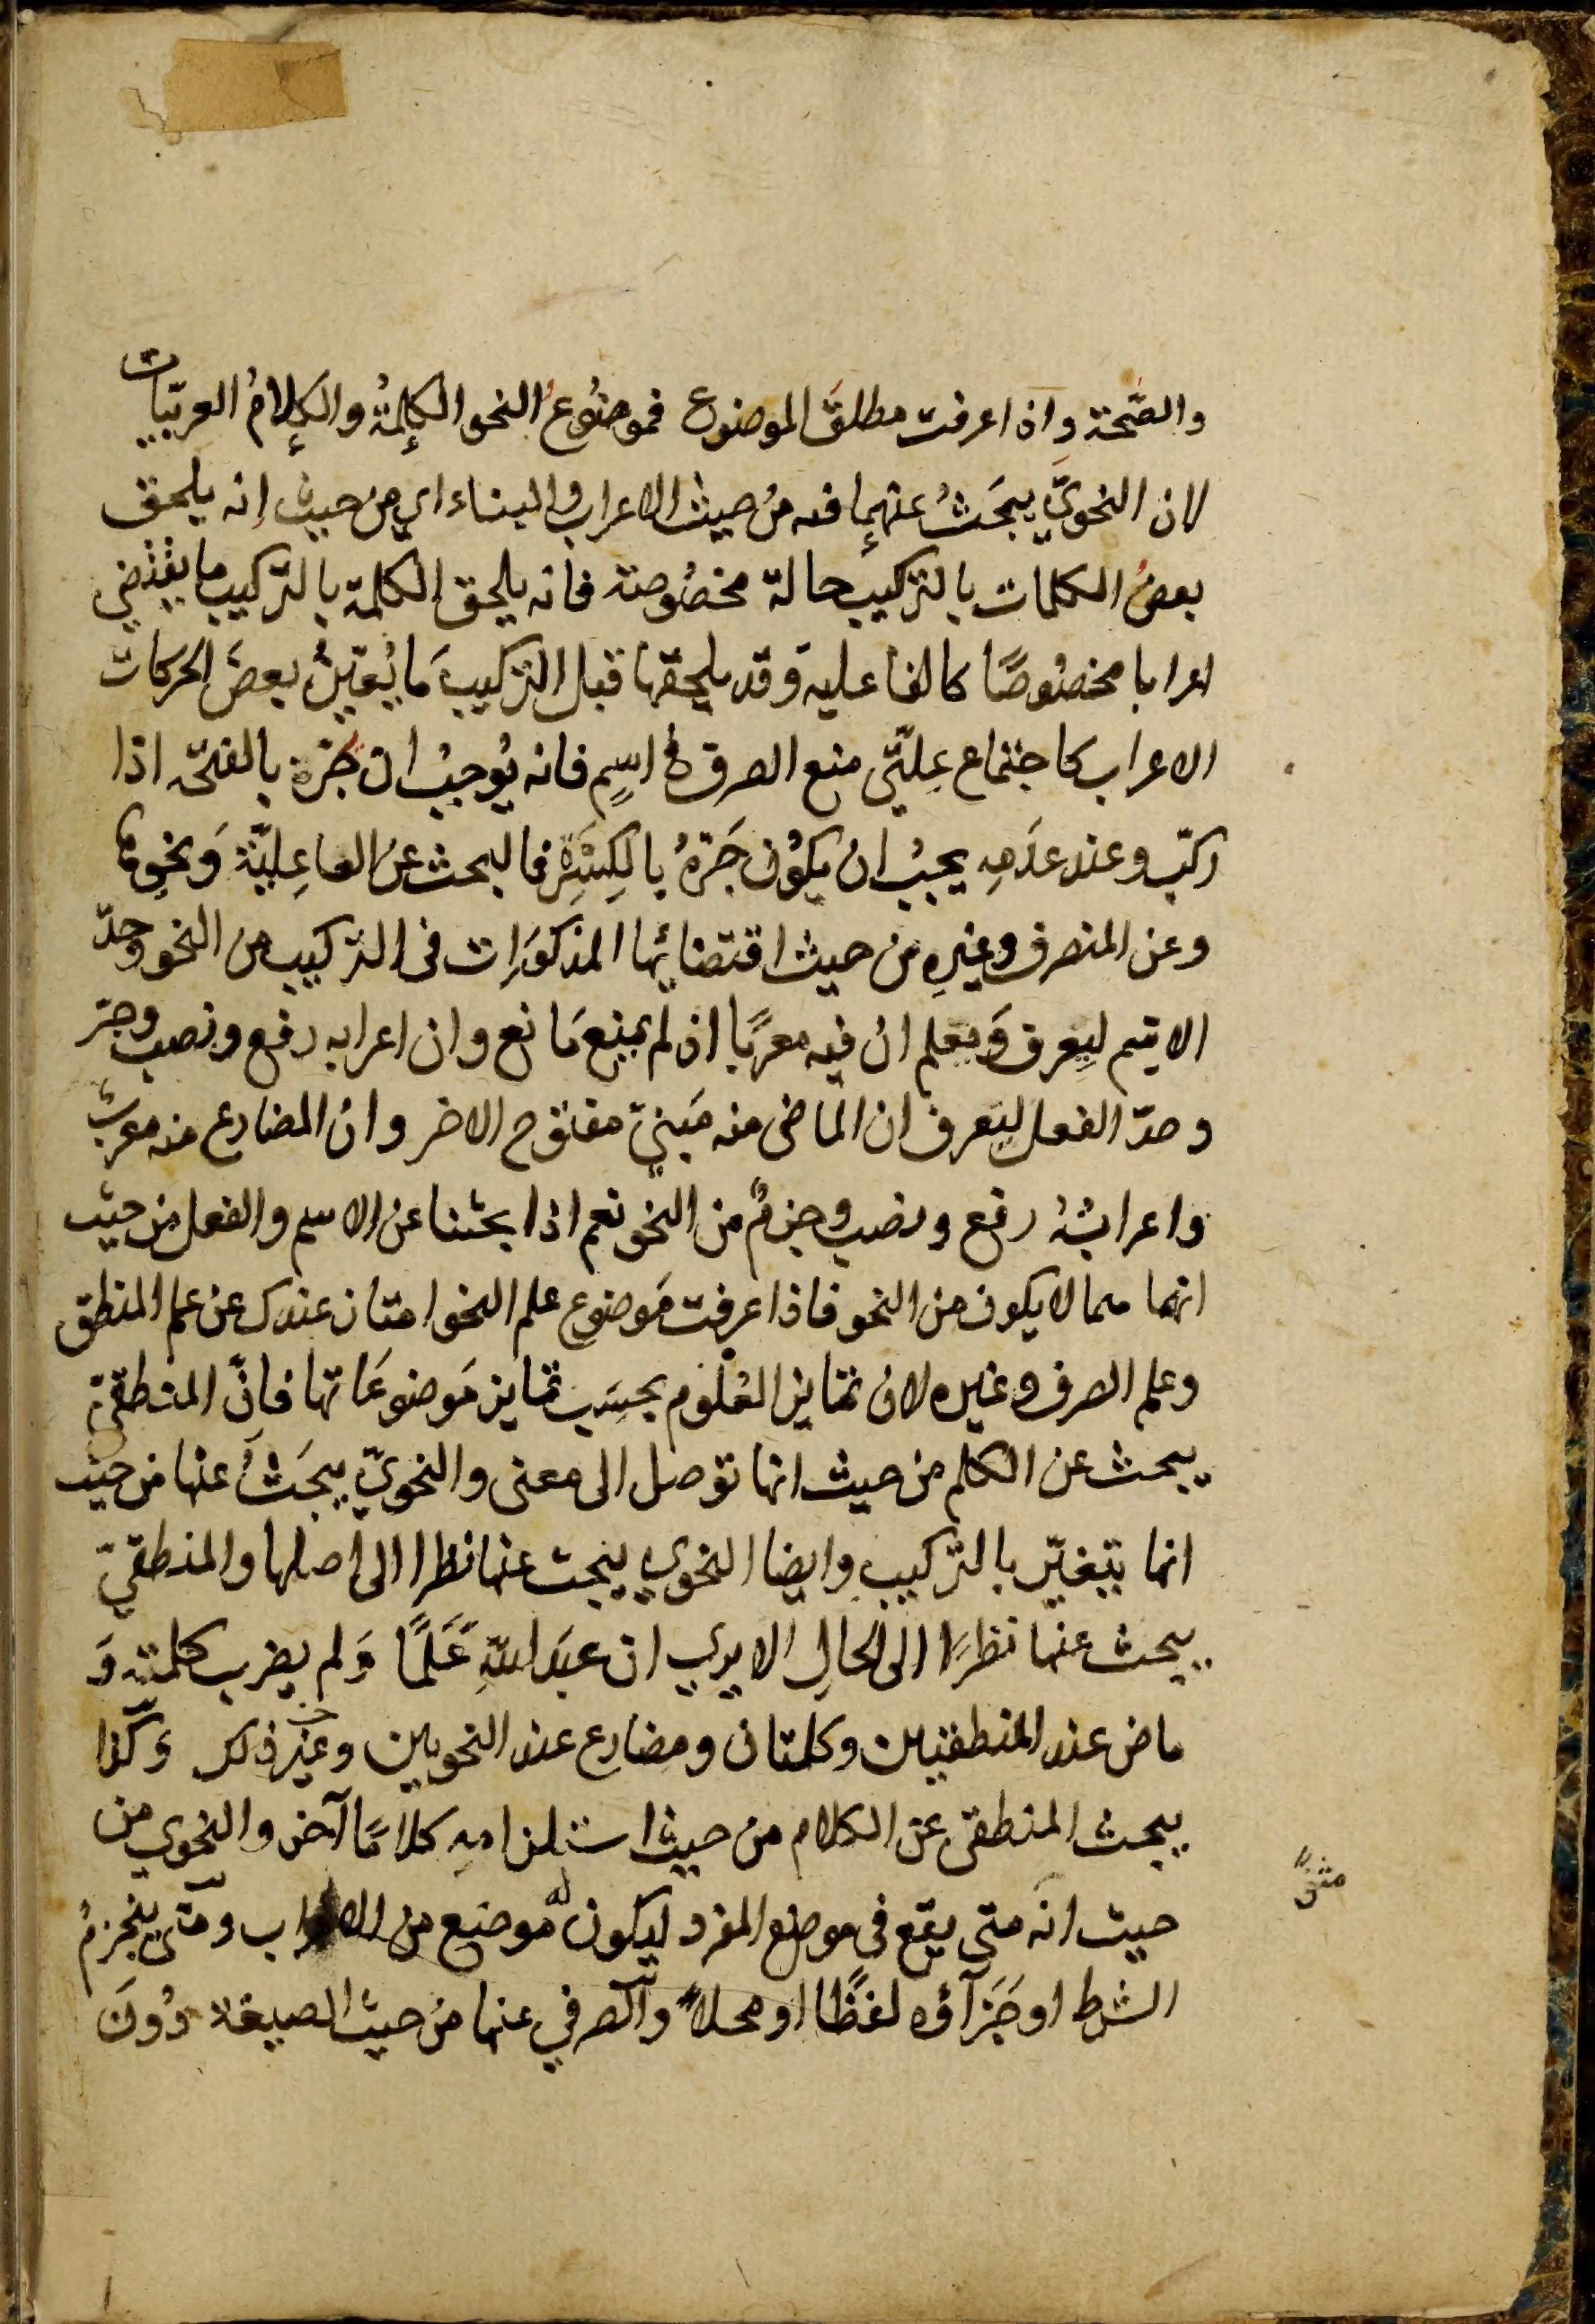 والصّحة وإذا عرفت مطلقَ الموضوع فموضُوعُ النحو الكلِمةُ والكلامُ العربيّات
لان النحويّ يبحَثُ عنهما فيه من حيث الاعراب والبناء اي من حيث انه يلحق
بعضُ الكلمات بالتركيب حالة مخصُوصة فانه يلحق الكلمة بالتركيب ما يقتضي
اعرابا مخصُوصًا كالفاعلية وقد يلحقها قبل التركيب مَا يُعَيّنُ بعضَ الحركات
الاعراب كاجتماع عِلّتَي منع الصرف في اسمٍ فانه يُوجبُ ان جَرّه بالفتحه اذا
ركّب وعند عدَمِه يجبُ ان يكوُن جَرّهُ بالكسْرَةِ فالبحث عن الفاعِليّة وَنحوِها
وعن المنصرف وغيرِه من حيث اقتضائها المذكوَرات فى التركيب من النحو وحدّ
الاسم ليِعرف وَيعلم ان فيه معرَبًا اذ لم يمنع مَانع وان اعرابه رفع ونصب وجرّ
وحدّ الفعل ليَعرف ان الماضى منه مَبنيّ مفتوح الاخر وان المضارع منه معربٌ
واعرابُهُ رفع ونصب وجزمٌ من النحو نعم اذا بحثنا عن الاسم والفعل من حيث
انهما هما لا يكون من النحو فاذا عرفت مَوضوع علم النحو امتاز عندك عن علم المنطق
وعلم الصرف وغيره لان تمايز العُلوُم بحسَب تمايز مَوضوعَاتها فانّ المنطقيّ
يبحث عن الكلم من حيث انها توصل الى معنى والنحويّ يبحَثُ عنها من حيث
انها تتغيّر بالتركيب وايضا النحوي يبحث عنها نظرا الى اصلها والمنطقيّ
يبحث عنها نظرًا الى الحالِ الا يرى ان عبدَ اللّهِ عَلَمًا وَلم يضرب كلمته وَ
ماض عند المنطقيين وكلمتان ومضارع عند النحويين وغير ذلك وَكذا
يبحث المنطقى عن الكلام من حيث استلزامِه كلامًا آخر والنحوي من
حيث انه متى يقع فى موضع المفرد ليكون له موضع من الاعراب ومتى ينجزمُ
الشرط او جَزآؤه لفظًا او محلاً والصرفي عنها من حيث الصيغة دُونَ